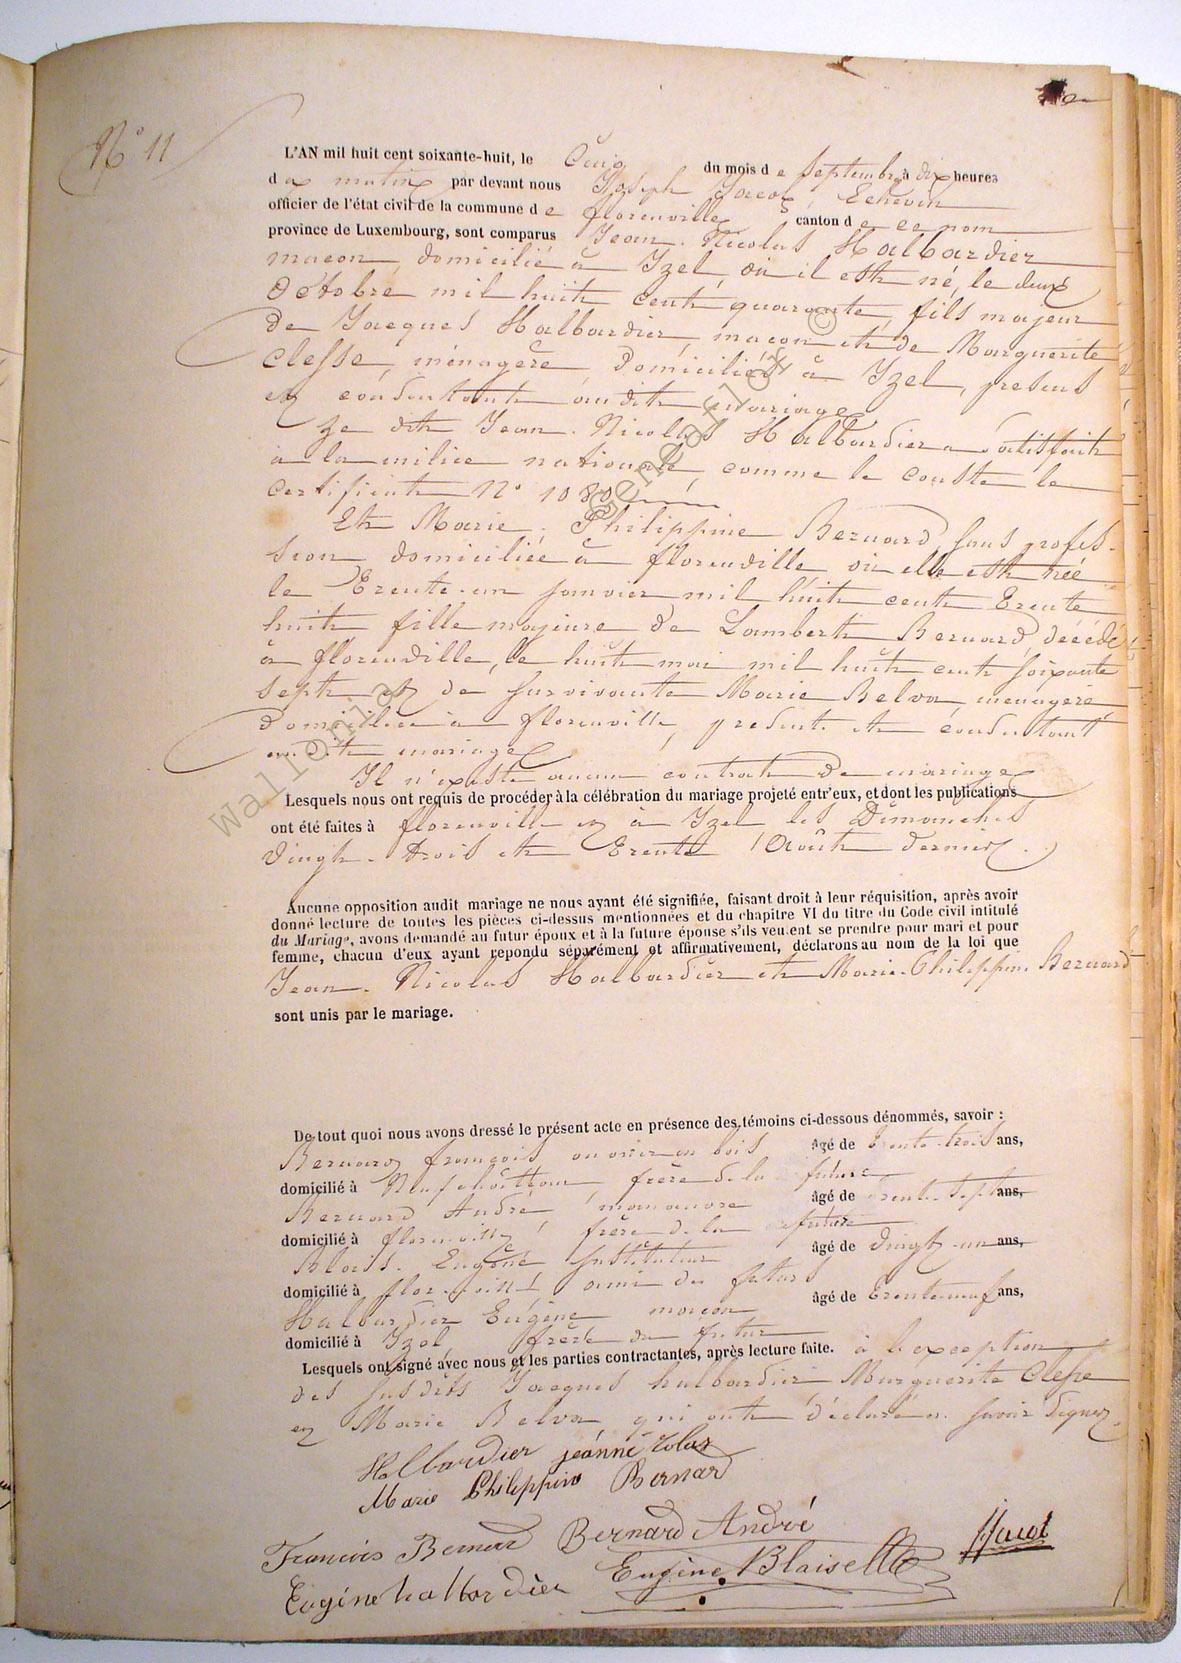 N° 11
L'AN mil huit cent soixante-huit, le Cinq du mois de Septembre à dix heures
du matin par devant nous Joseph Jacot, Echevin
officier de l'état civil de la commune de florenville canton de ce nom
province de Luxembourg, sont comparus Jean-Nicolas Halbardier
macon, domicilié à Izel, où il est né, le deux
Octobre mil huit cent quarante, fils majeur
de Jacques Halbardier, macon et de Marguerite
Clesse, ménagère, domiciliés à Izel, presens
et consentant audit mariage
Le dit Jean-Nicolas Halbardier a satisfait
à la milice nationale, comme le conste le
certificat N° 1080
Et Marie-Philippine Bernard, sans profes-
sion domiciliée à florenville où elle est née
le Trente-un janvier mil huit cent Trente
huit fille majeure de Lambert Bernard, décédé
à florenville, le huit mai mil huit cent soixante
sept et de survivante Marie Belva, menagere
domiciliée à florenville, présente et consentant
audit mariage
Il n'existe aucun contrat de mariage
Lesquels nous ont requis de procéder à la célébration du mariage projeté entr'eux, et dont les publications
ont été faites à florenville et à Izel les Dimanches
vingt-trois et Trente Août dernier.
Aucune opposition audit mariage ne nous ayant été signifiée, faisant droit à leur réquisition, après avoir
donné lecture de toutes les pièces ci-dessus mentionnées et du chapitre VI du titre du Code civil intitulé
du Mariage, avons demandé au futur époux et à la future épouse s'ils veulent se prendre pour mari et pour
femme, chacun d'eux ayant repondu séparément et affirmativement, déclarons au nom de la loi que
Jean-Nicolas Halbardier et Marie-Philippine Bernard
sont unis par le mariage.
De tout quoi nous avons dressé le présent acte en présence des témoins ci-dessous dénommés, savoir :
Bernard françois ouvrier en bois âgé de trente-trois ans,
domicilié à Neufchâteau, frère de la future
Bernard André, manœuvre âgé de trente-sept ans,
domicilié à florenville, frère de la future
Eugène Instituteur âgé de vingt-un ans,
domicilié à florenville, ami des futurs
Halbardier Eugène macon âgé de Trente neuf ans,
domicilié à Izel, frère du futur
Lesquels ont signé avec nous et les parties contractantes, après lecture faite. à l'exception
des susdits Jacques halbardier Marguerite Clesse
et Marie Belva qui ont déclaré ne savoir signer.
Halbardier jeannicolas
Marie Philippine Bernard
Francois Bernard Bernard André JJacot
Eugéne halbardier Eugène Blaise
wallonie GeneaFlor ©